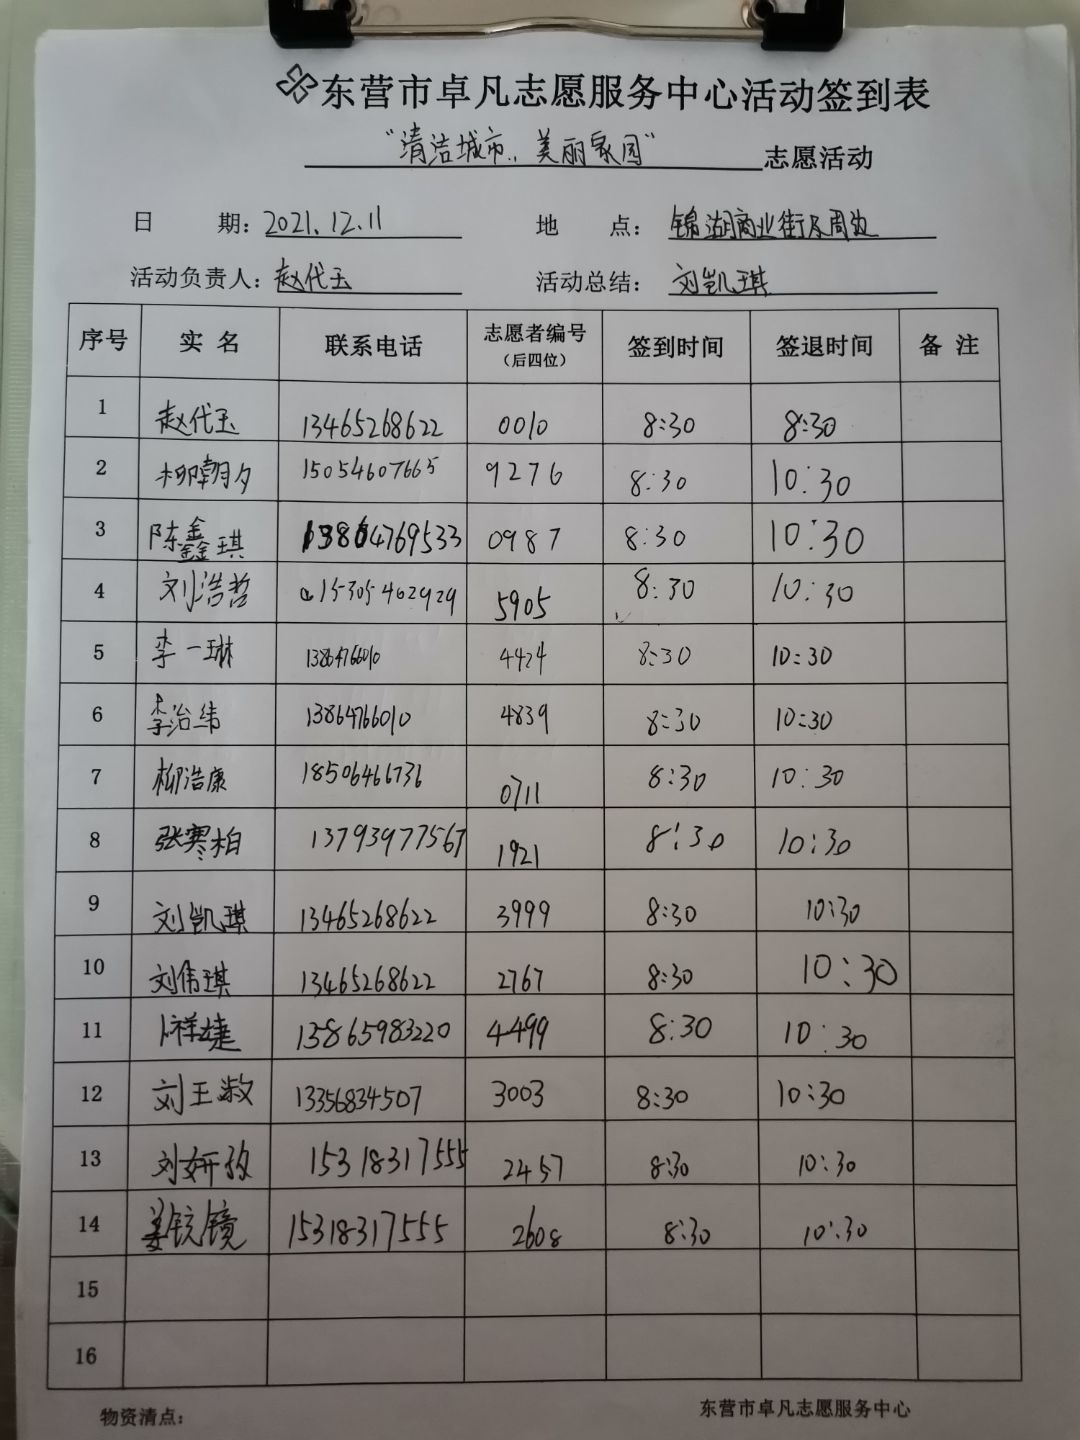 东营市卓凡志愿服务中心活动签到表
“清洁城市,,美丽家园” 志愿活动
日 期：2021.12.11 地 点：锦湖商业街及周边
活动负责人：赵代玉 活动总结：刘凯琪
序号 实名 联系电话 志愿者编号（后四位） 签到时间 签退时间 备注
1 赵代玉 13465268622 0010 8:30 8:30
2 柳朝夕 15054607665 9276 8:30 10:30
3 陈鑫琪 13864769533 0987 8:30 10:30
4 刘浩哲 15305462929 5905 8:30 10:30
5 李一琳 13864766010 4424 8:30 10:30
6 李治纬 13864766010 4839 8:30 10:30
7 柳浩康 18506466736 0711 8:30 10:30
8 张寒柏 13793977567 1921 8:30 10:30
9 刘凯琪 13465268622 3999 8:30 10:30
10 刘伟琪 13465268622 2767 8:30 10:30
11 13865983220 4499 8:30 10:30
12 刘王淑 13356834507 3003 8:30 10:30
13 刘妍孜 15318317555 2457 8:30 10:30
14 姜镜 15318317555 2608 8:30 10:30
15
16
物资清点： 东营市卓凡志愿服务中心